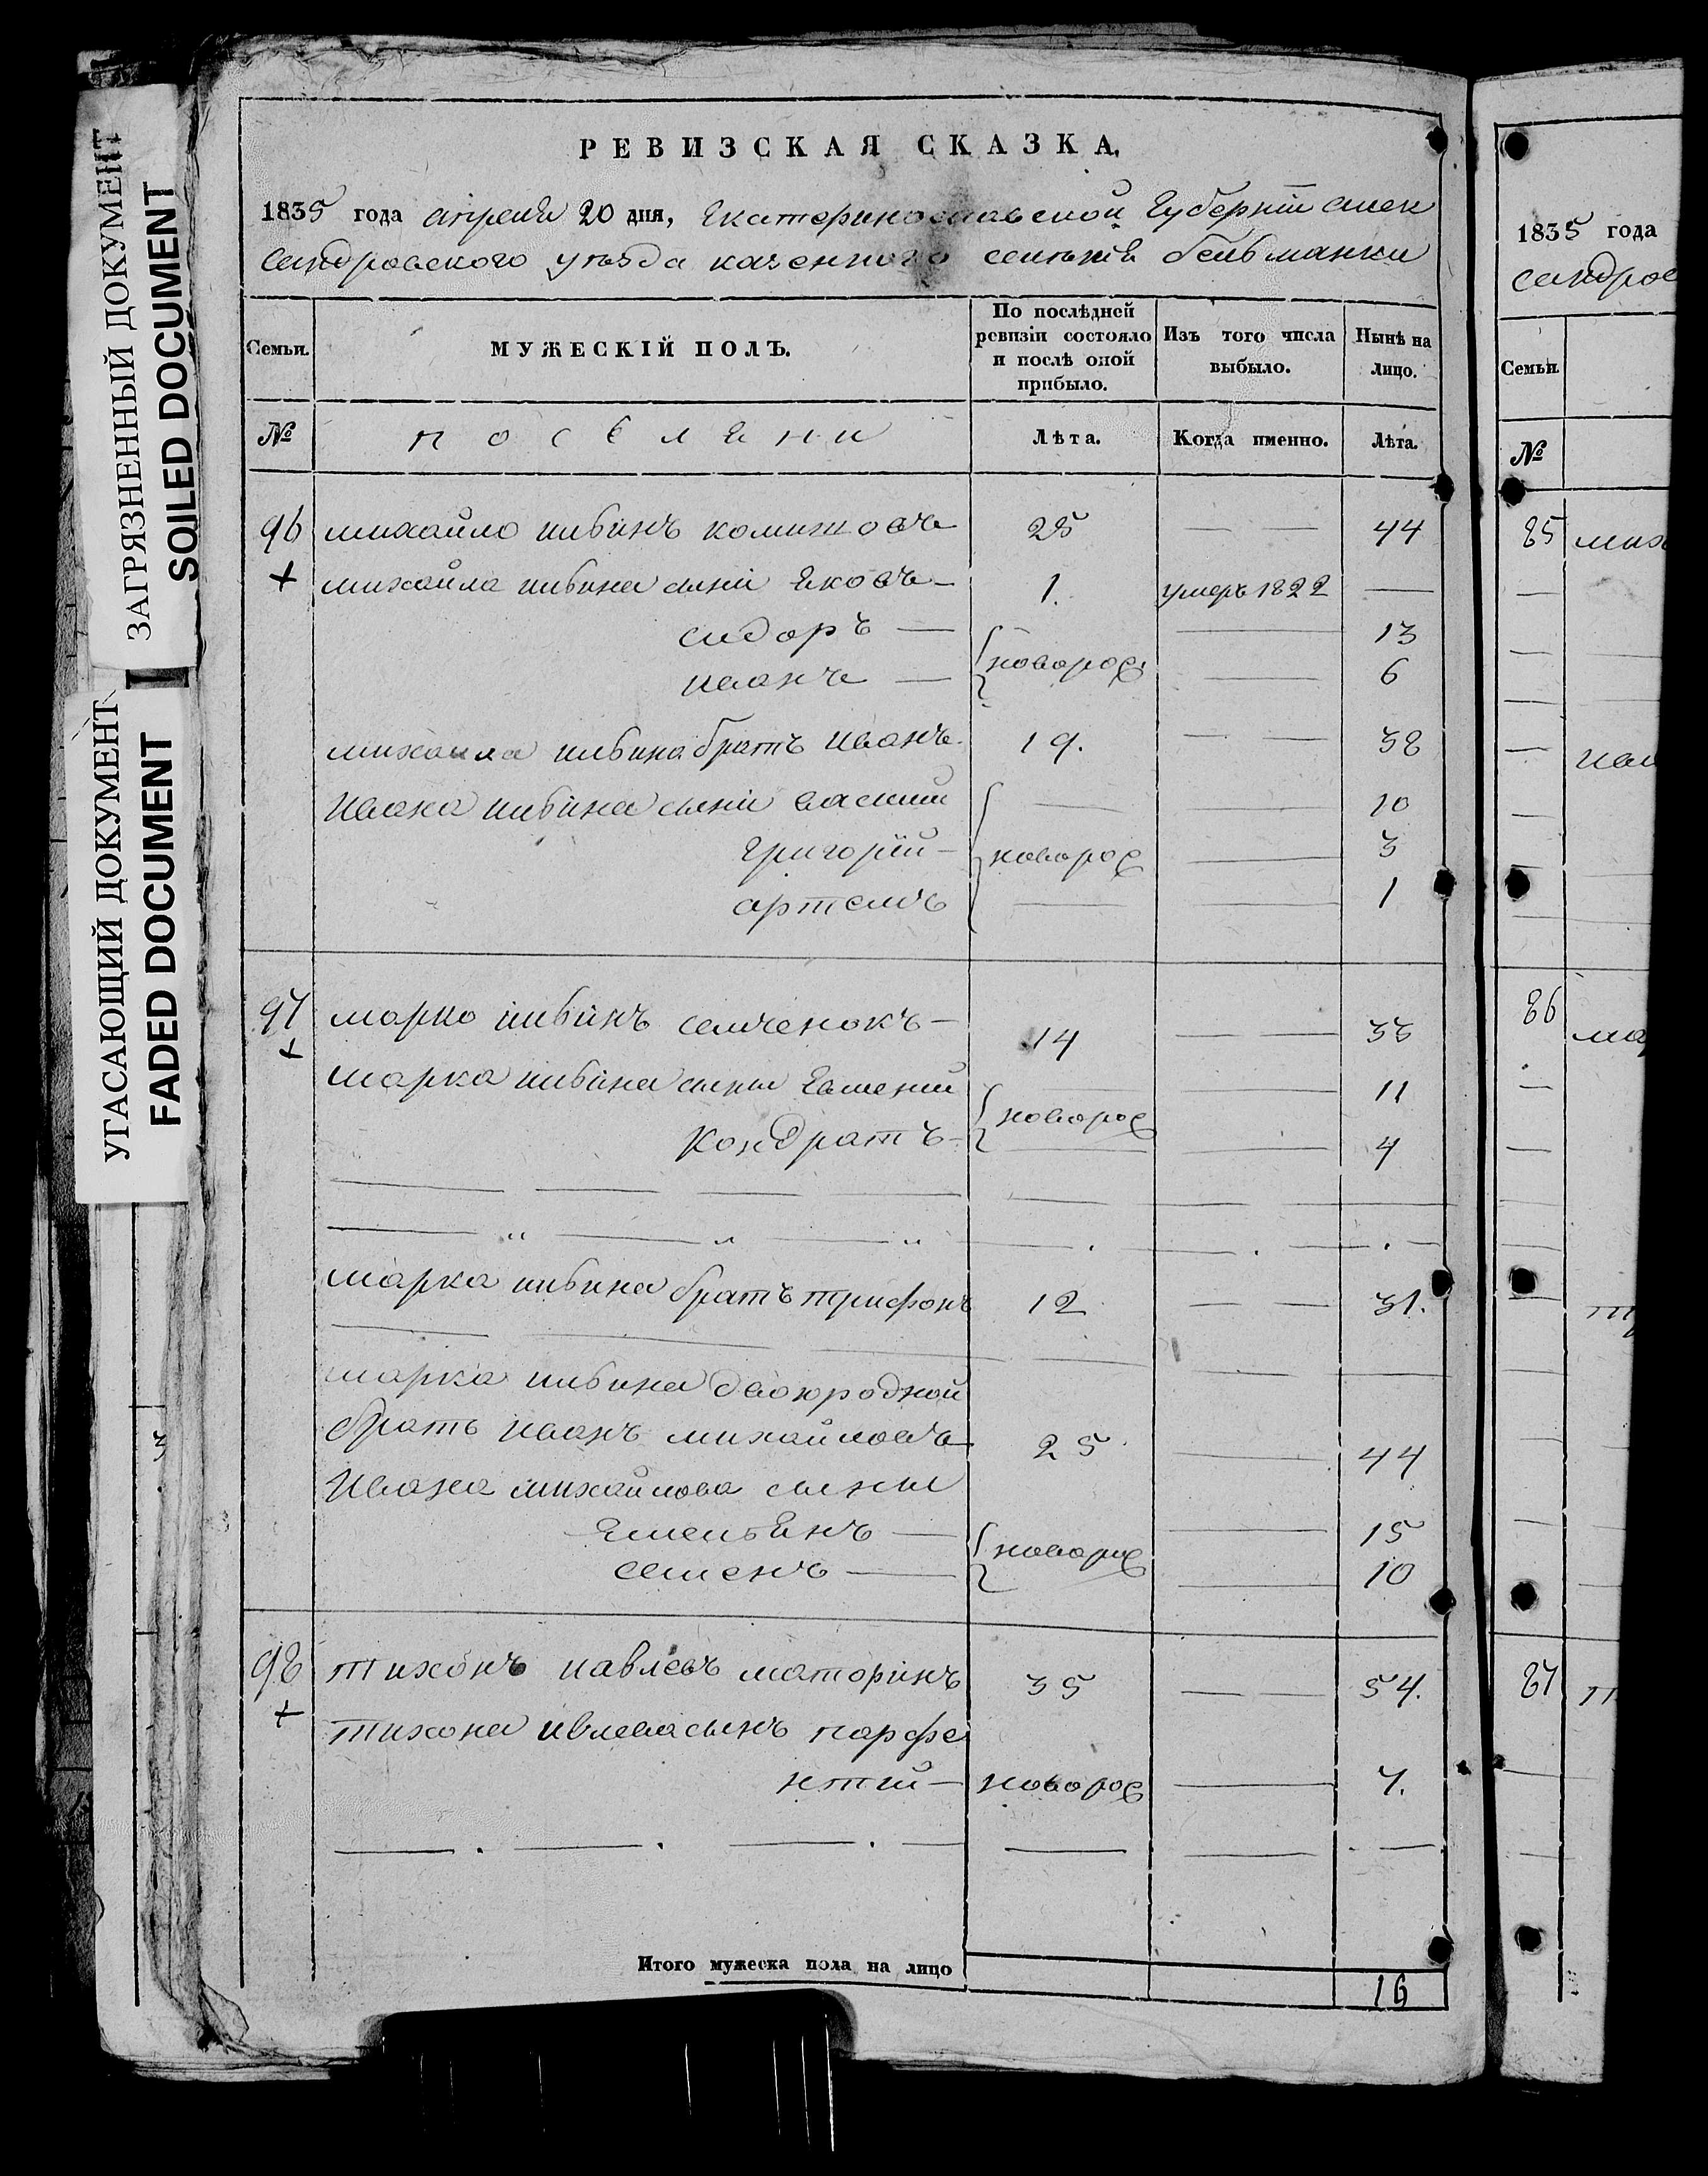 ЗАГРЯЗНЕННЫЙ ДОКУМЕНТ
SOILED DOCUMENT
УГАСАЮЩИЙ ДОКУМЕНТ
FADED DOCUMENT
РЕВИЗСКАЯ СКАЗКА,
1835 года апреля 20 дня, Екатеринославской Губернiи алек
сандровского уезда казенного селенiя бельманки
Семьи. МУЖЕСКIЙ ПОЛЪ. По послѣдней ревизiи состояло и послѣ оной прибыло. Изъ того числа выбыло. Нынѣ на лицо.
№ поселяни Лѣта. Когда именно. Лѣта.
96 михайло ильинъ 25 — — 44
+ михайла ильина сынiи Яковъ — 1. умеръ 1822 —
сидоръ — новорож — 13
иванъ — — 6
михаила ильина братъ иванъ 19. — — 38
Ивана ильина сынiи василий — — 10
григорiй — новорож — 3
артемъ — — 1
97 марко ильинъ семченокъ — 14 — — 33
+ марка ильина сыны Евмений — 11
Кондратъ — новорож — 4
марка ильина братъ трифонъ 12 — — 31.
марка ильина двоюродной
братъ иванъ михайловъ 25 — 44
Ивана михайлова сыны
Емельянъ — новорож — 15
семенъ — — 10
98 тихонъ иавлевъ маторинъ 35 — — 54.
+ тихона ивлева сынъ парфе
нтий — новорож — 7.
Итого мужеска пола на лицо 16
1835 года
сандров
Семьи.
№
85 мих
ива
86 ма
87